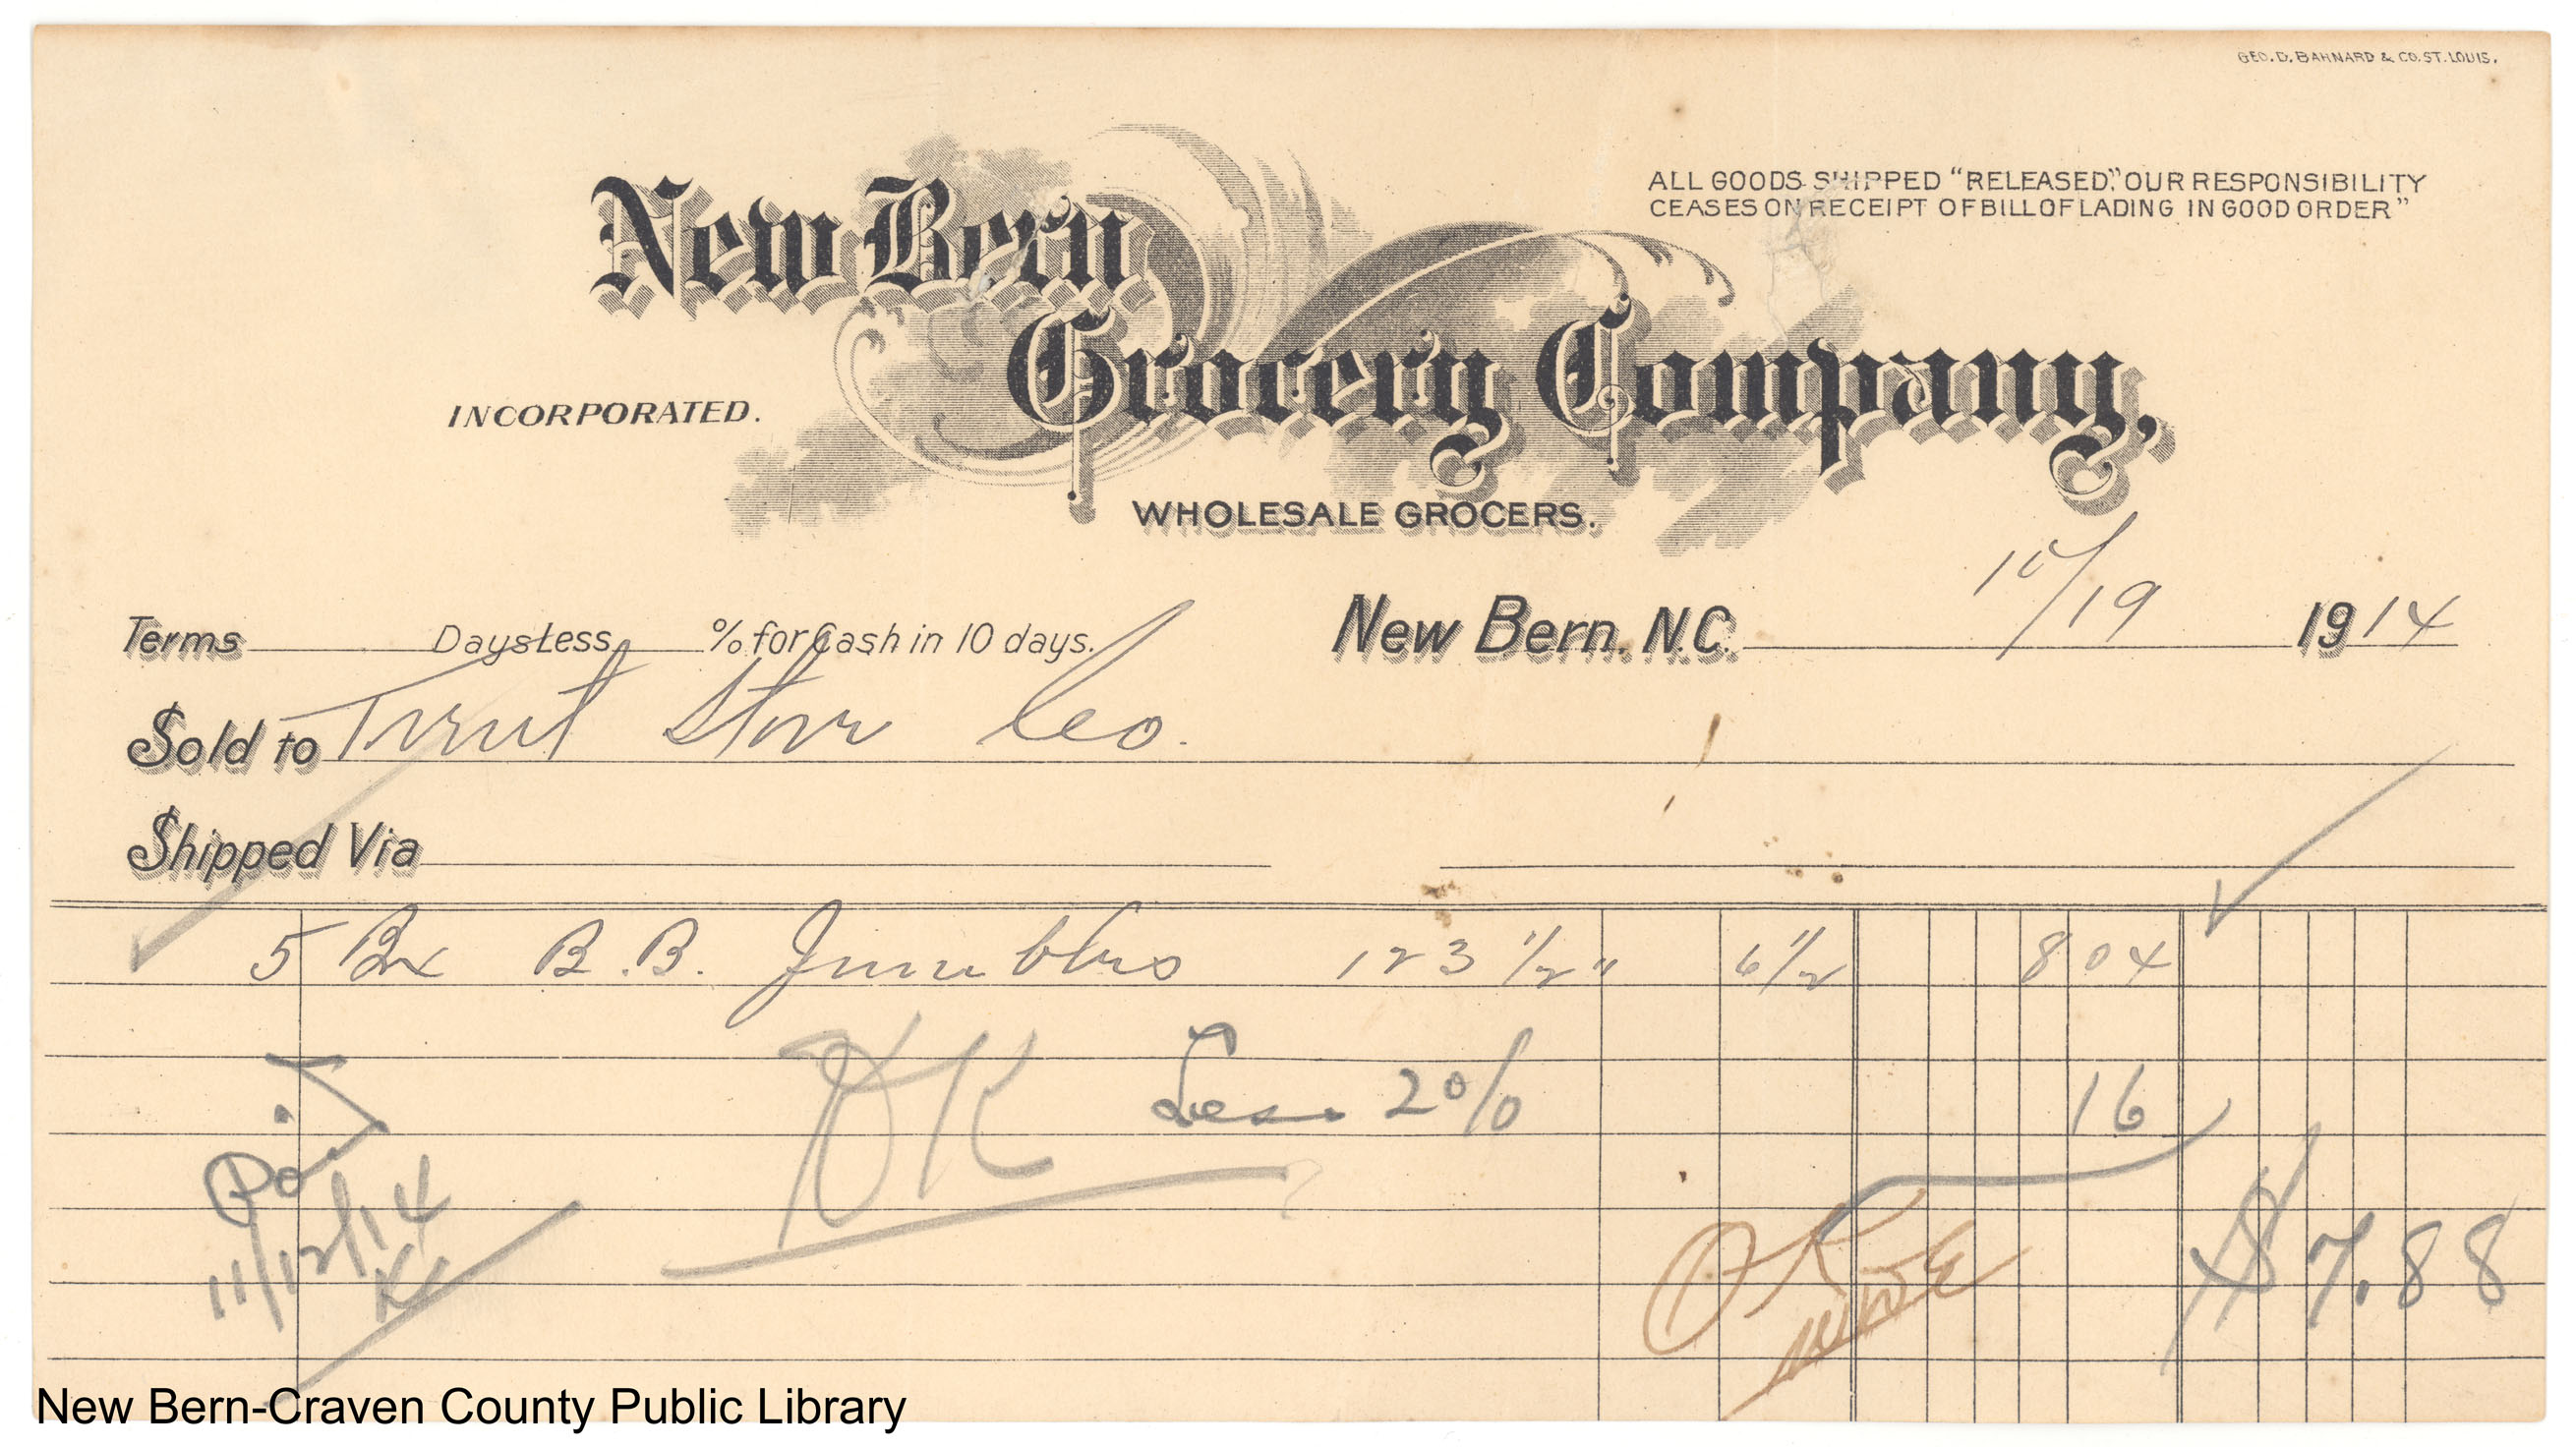 GEO. D. BARNARD & CO. ST. LOUIS.
ALL GOODS SHIPPED "RELEASED," OUR RESPONSIBILITY
CEASES ON RECEIPT OF BILL OF LADING IN GOOD ORDER"
New Bern
Grocery Company,
INCORPORATED.
WHOLESALE GROCERS.
Terms Days Less % for Cash in 10 days.
New Bern, N.C. 10/19 1914
Sold to Trent Store Co.
Shipped Via
5 Bx B.B. Jumbles 123 1/2 " 6 1/2 8 04
OK Less 2% 16
Paid
11/12/14
OK
$7.88
New Bern-Craven County Public Library